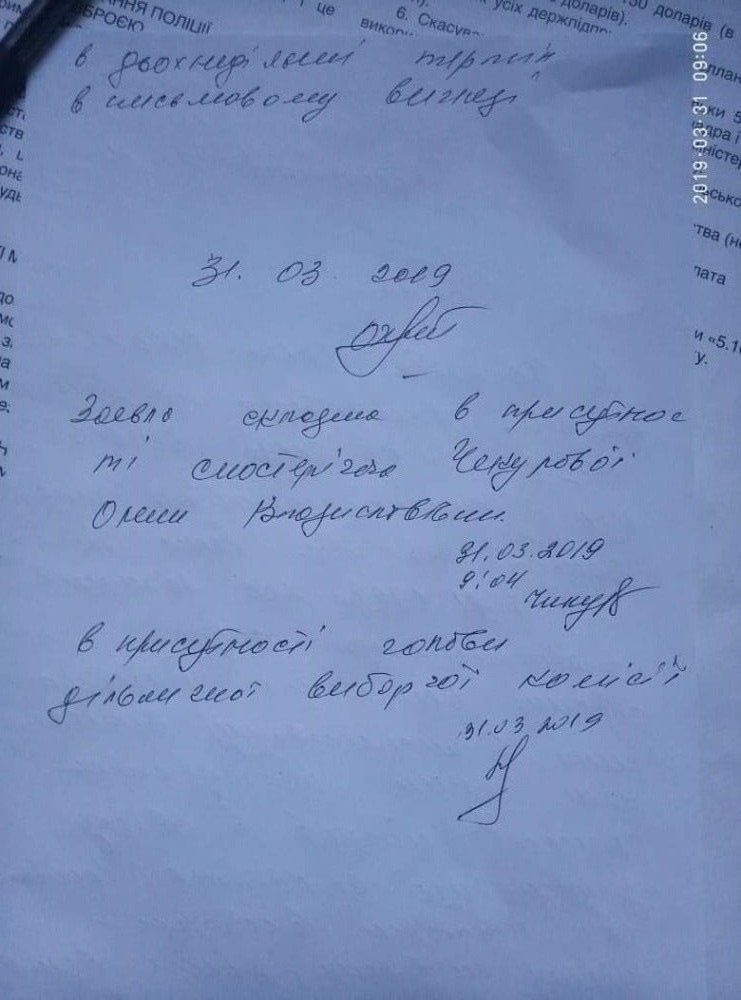 ННЯ ПОЛІЦІЇ
ЗБРОЄЮ
і це
6. Скасув
викори
усіх держпідпр
доларів).
доларів (в
в двохнедільний термін
в письмовому вигляді
31. 03. 2019
Заява складена в присутнос
ті спостерігача Чекурової
Олени Владиславівни.
31.03.2019
9:04
в присутності голови
дільничної виборчої комісії
31.03.2019
2019-03-31 09:06
план
ки 5
ністер
ства (не
лата
и «5.10
у.